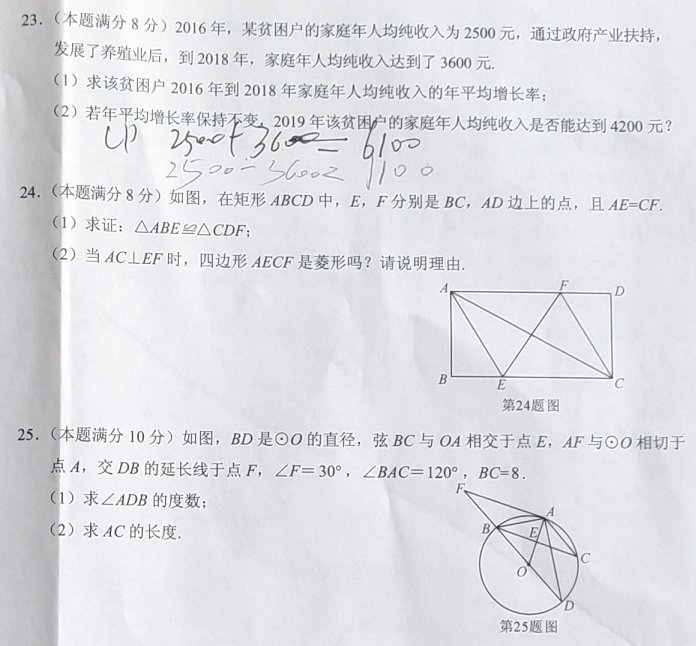 23.（本题满分 8 分）2016 年，某贫困户的家庭年人均纯收入为 2500 元，通过政府产业扶持，
发展了养殖业后，到 2018 年，家庭年人均纯收入达到了 3600 元.
（1）求该贫困户 2016 年到 2018 年家庭年人均纯收入的年平均增长率；
（2）若年平均增长率保持不变，2019 年该贫困户的家庭年人均纯收入是否能达到 4200 元？
(1) 2500+3600=6100
2500-3600=1100
24.（本题满分 8 分）如图，在矩形 ABCD 中，E，F 分别是 BC，AD 边上的点，且 AE=CF.
（1）求证：△ABE≌△CDF；
（2）当 AC⊥EF 时，四边形 AECF 是菱形吗？请说明理由.
A F D
B E C
第24题图
25.（本题满分 10 分）如图，BD 是⊙O 的直径，弦 BC 与 OA 相交于点 E，AF 与⊙O 相切于
点 A，交 DB 的延长线于点 F，∠F＝30°，∠BAC＝120°，BC=8.
（1）求∠ADB 的度数；
（2）求 AC 的长度.
F
A
B E
C
O
D
第25题图